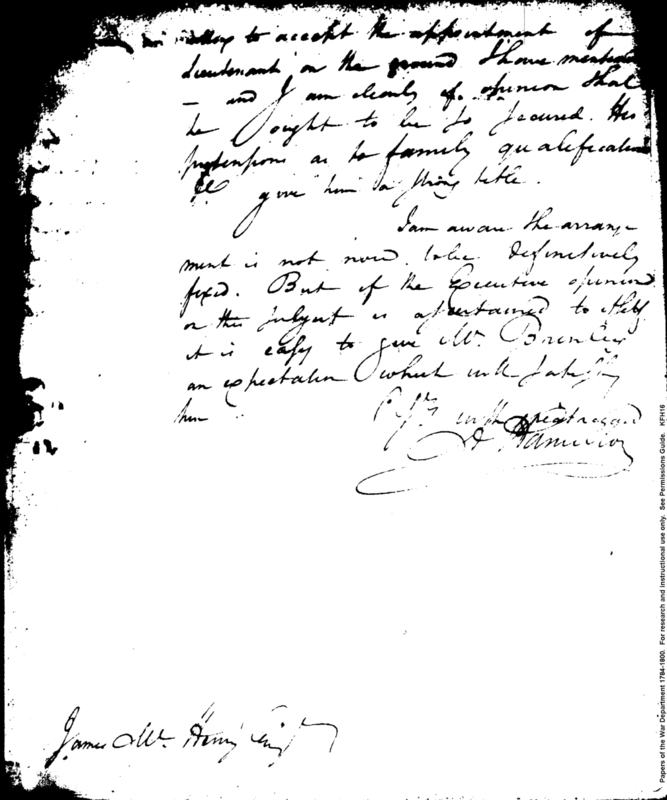 to accept the appointment of
Lieutenant on the ground I have mentioned
– and I am clearly of opinion that
he ought to be so secured. His
pretensions as to family qualification
&c give him a strong title.
I am aware the arrange
ment is not now to be definitively
fixed. But if the Executive opinion
on this subject is ascertained to itself
it is easy to give Mr. Brinley
an expectation which will satisfy
him
with great regard
A Hamilton
James McHenry Esqr
Papers of the War Department 1784-1800. For research and instructional use only. See Permissions Guide. KFH16